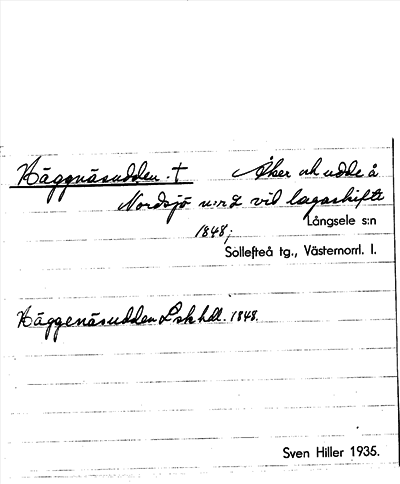 Häggnäsudden. † Åker och udde å
Nordsjö n:r 2 vid lagaskifte
Långsele s:n
1848;
Sollefteå tg., Västernorrl. l.
Häggenäsudden Lskhdl. 1848.
Sven Hiller 1935.